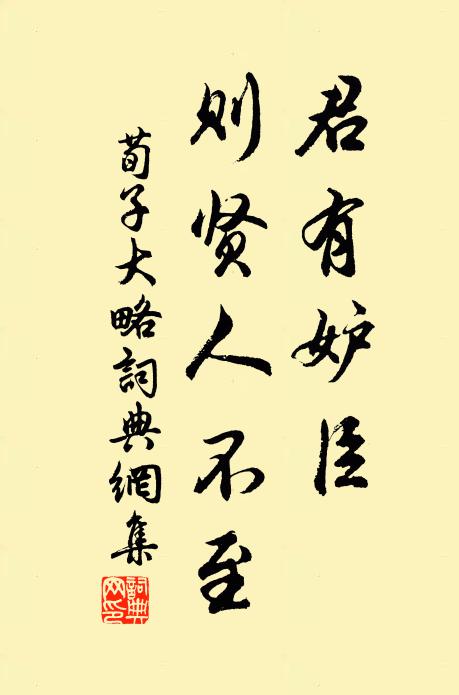 君有妒臣
则贤人不至
荀子大略詞典網集
詞典网印